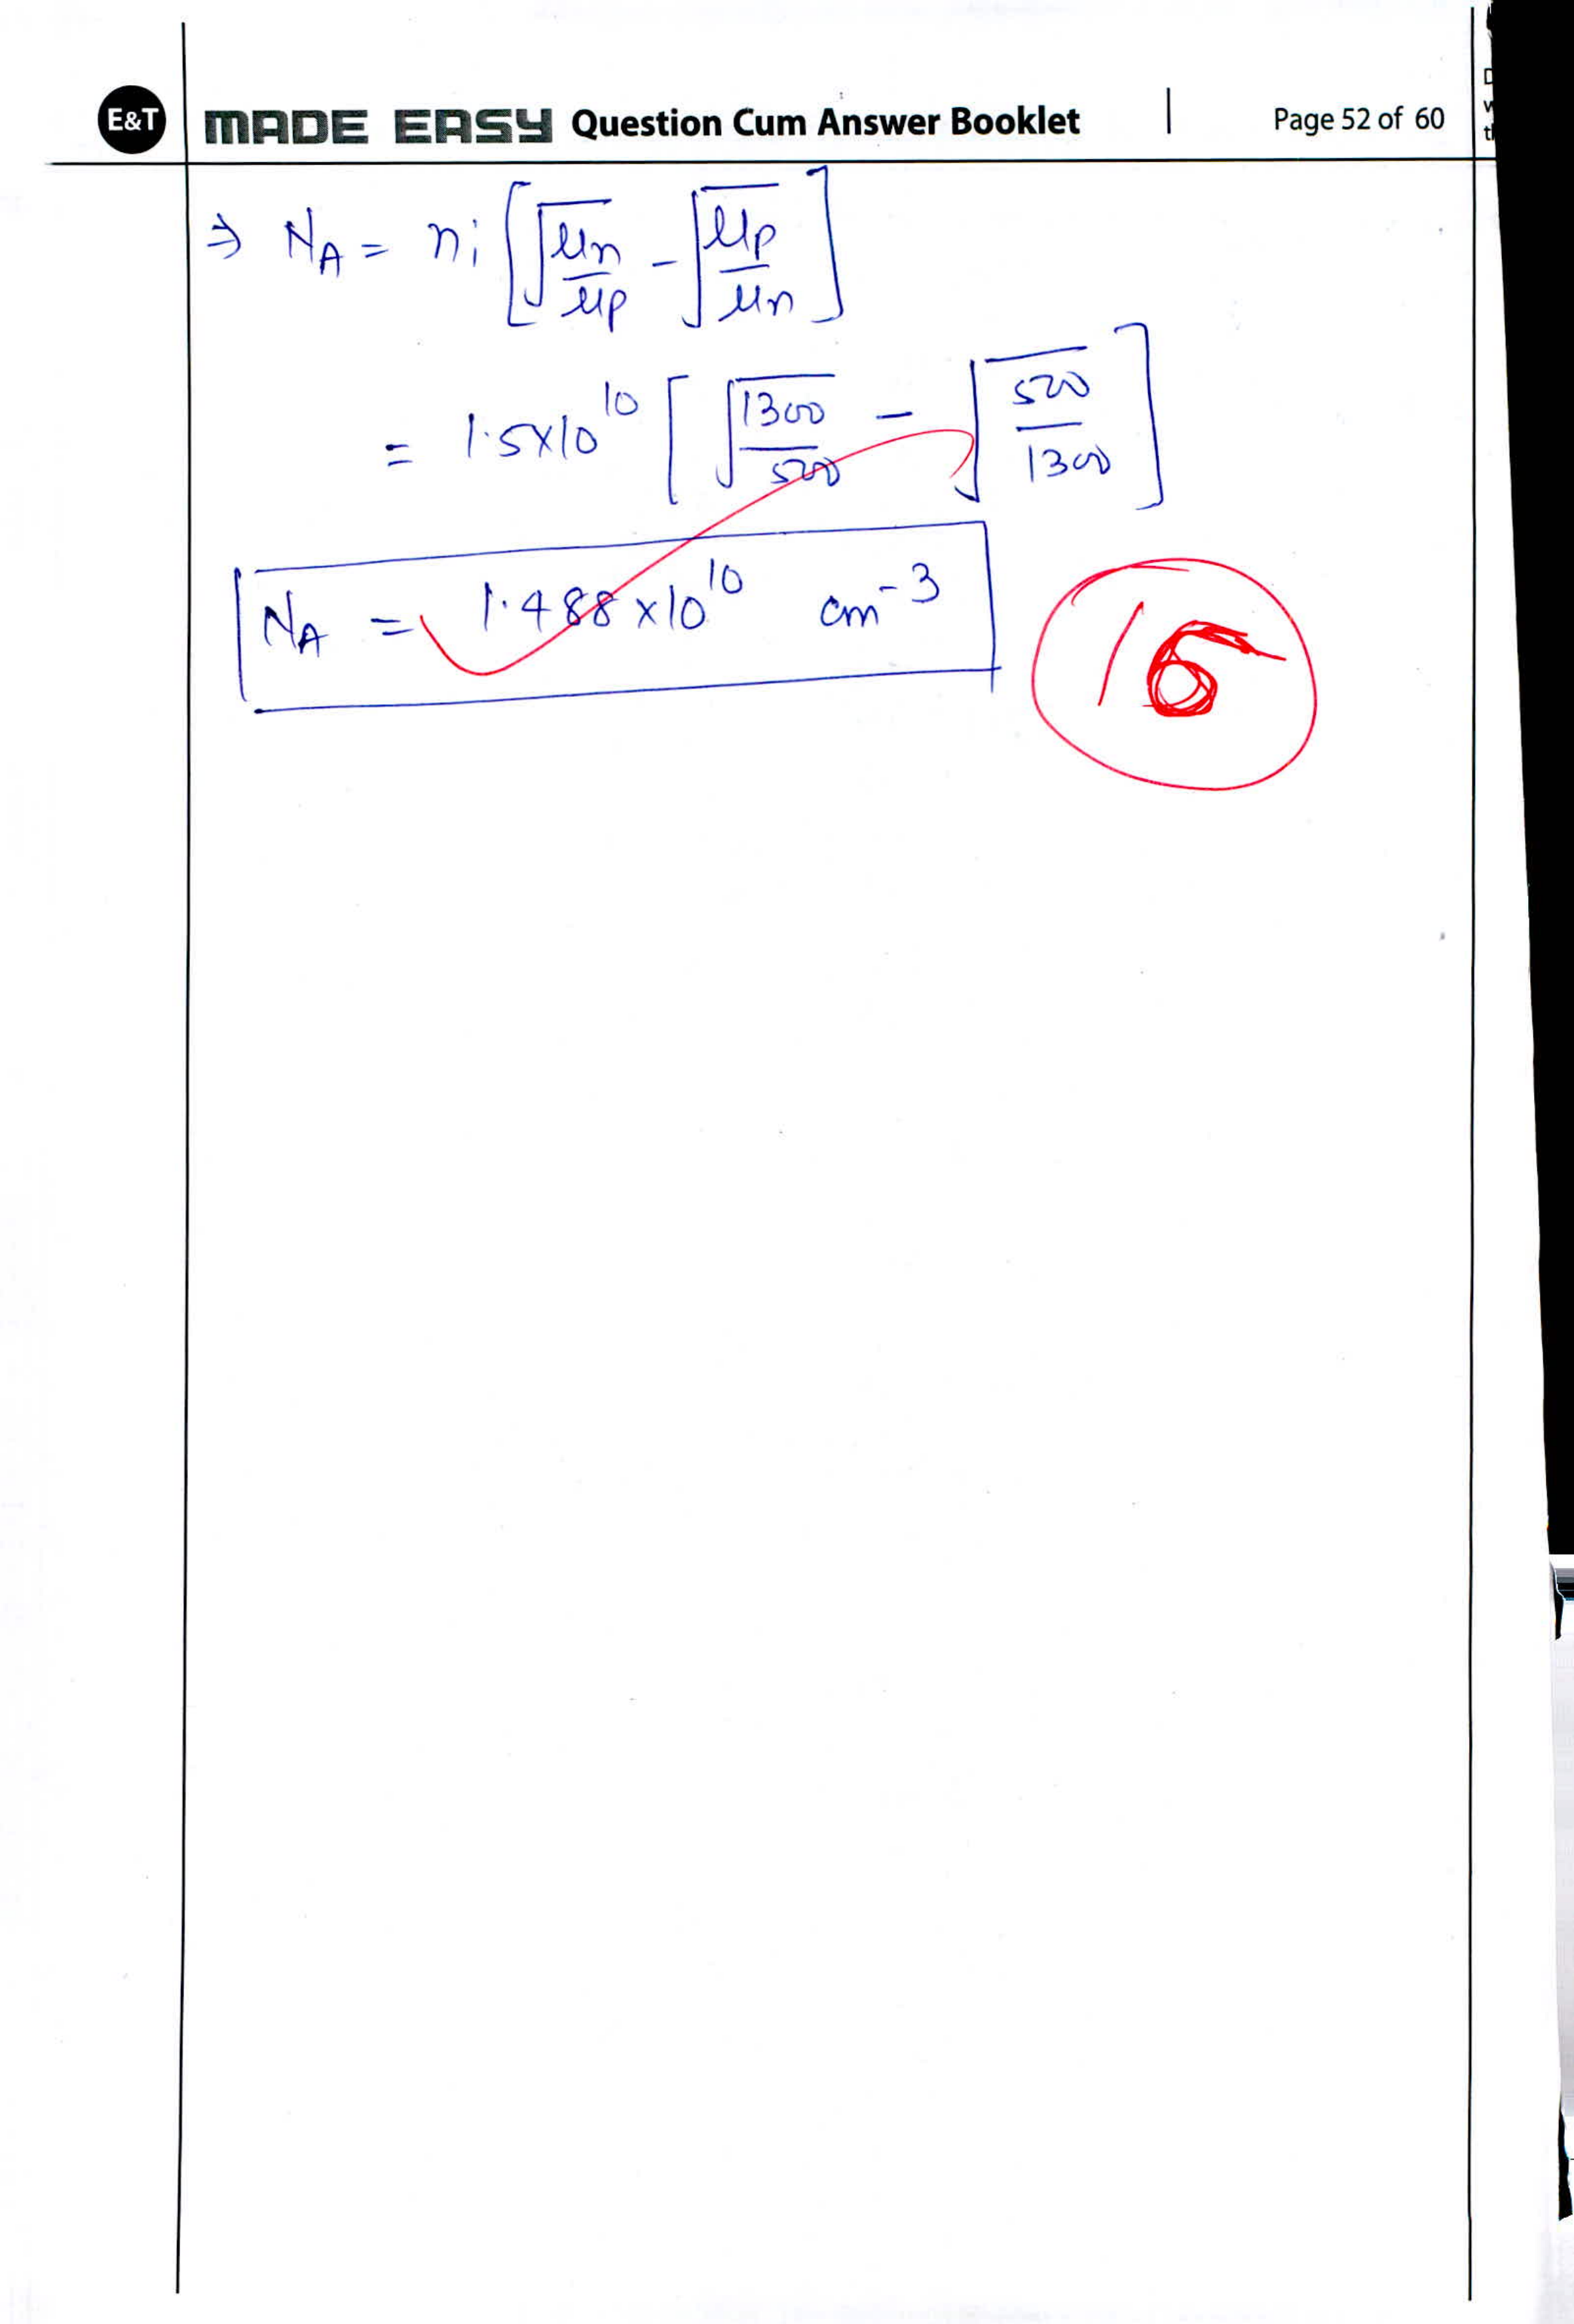 E&T MADE EASY Question Cum Answer Booklet | Page 52 of 60
⇒ N_A = n_i [√(μn/μp) - √(μp/μn)]
= 1.5×10^10 [√(1300/520) - √(520/1300)]
N_A = 1.488×10^10 cm^-3